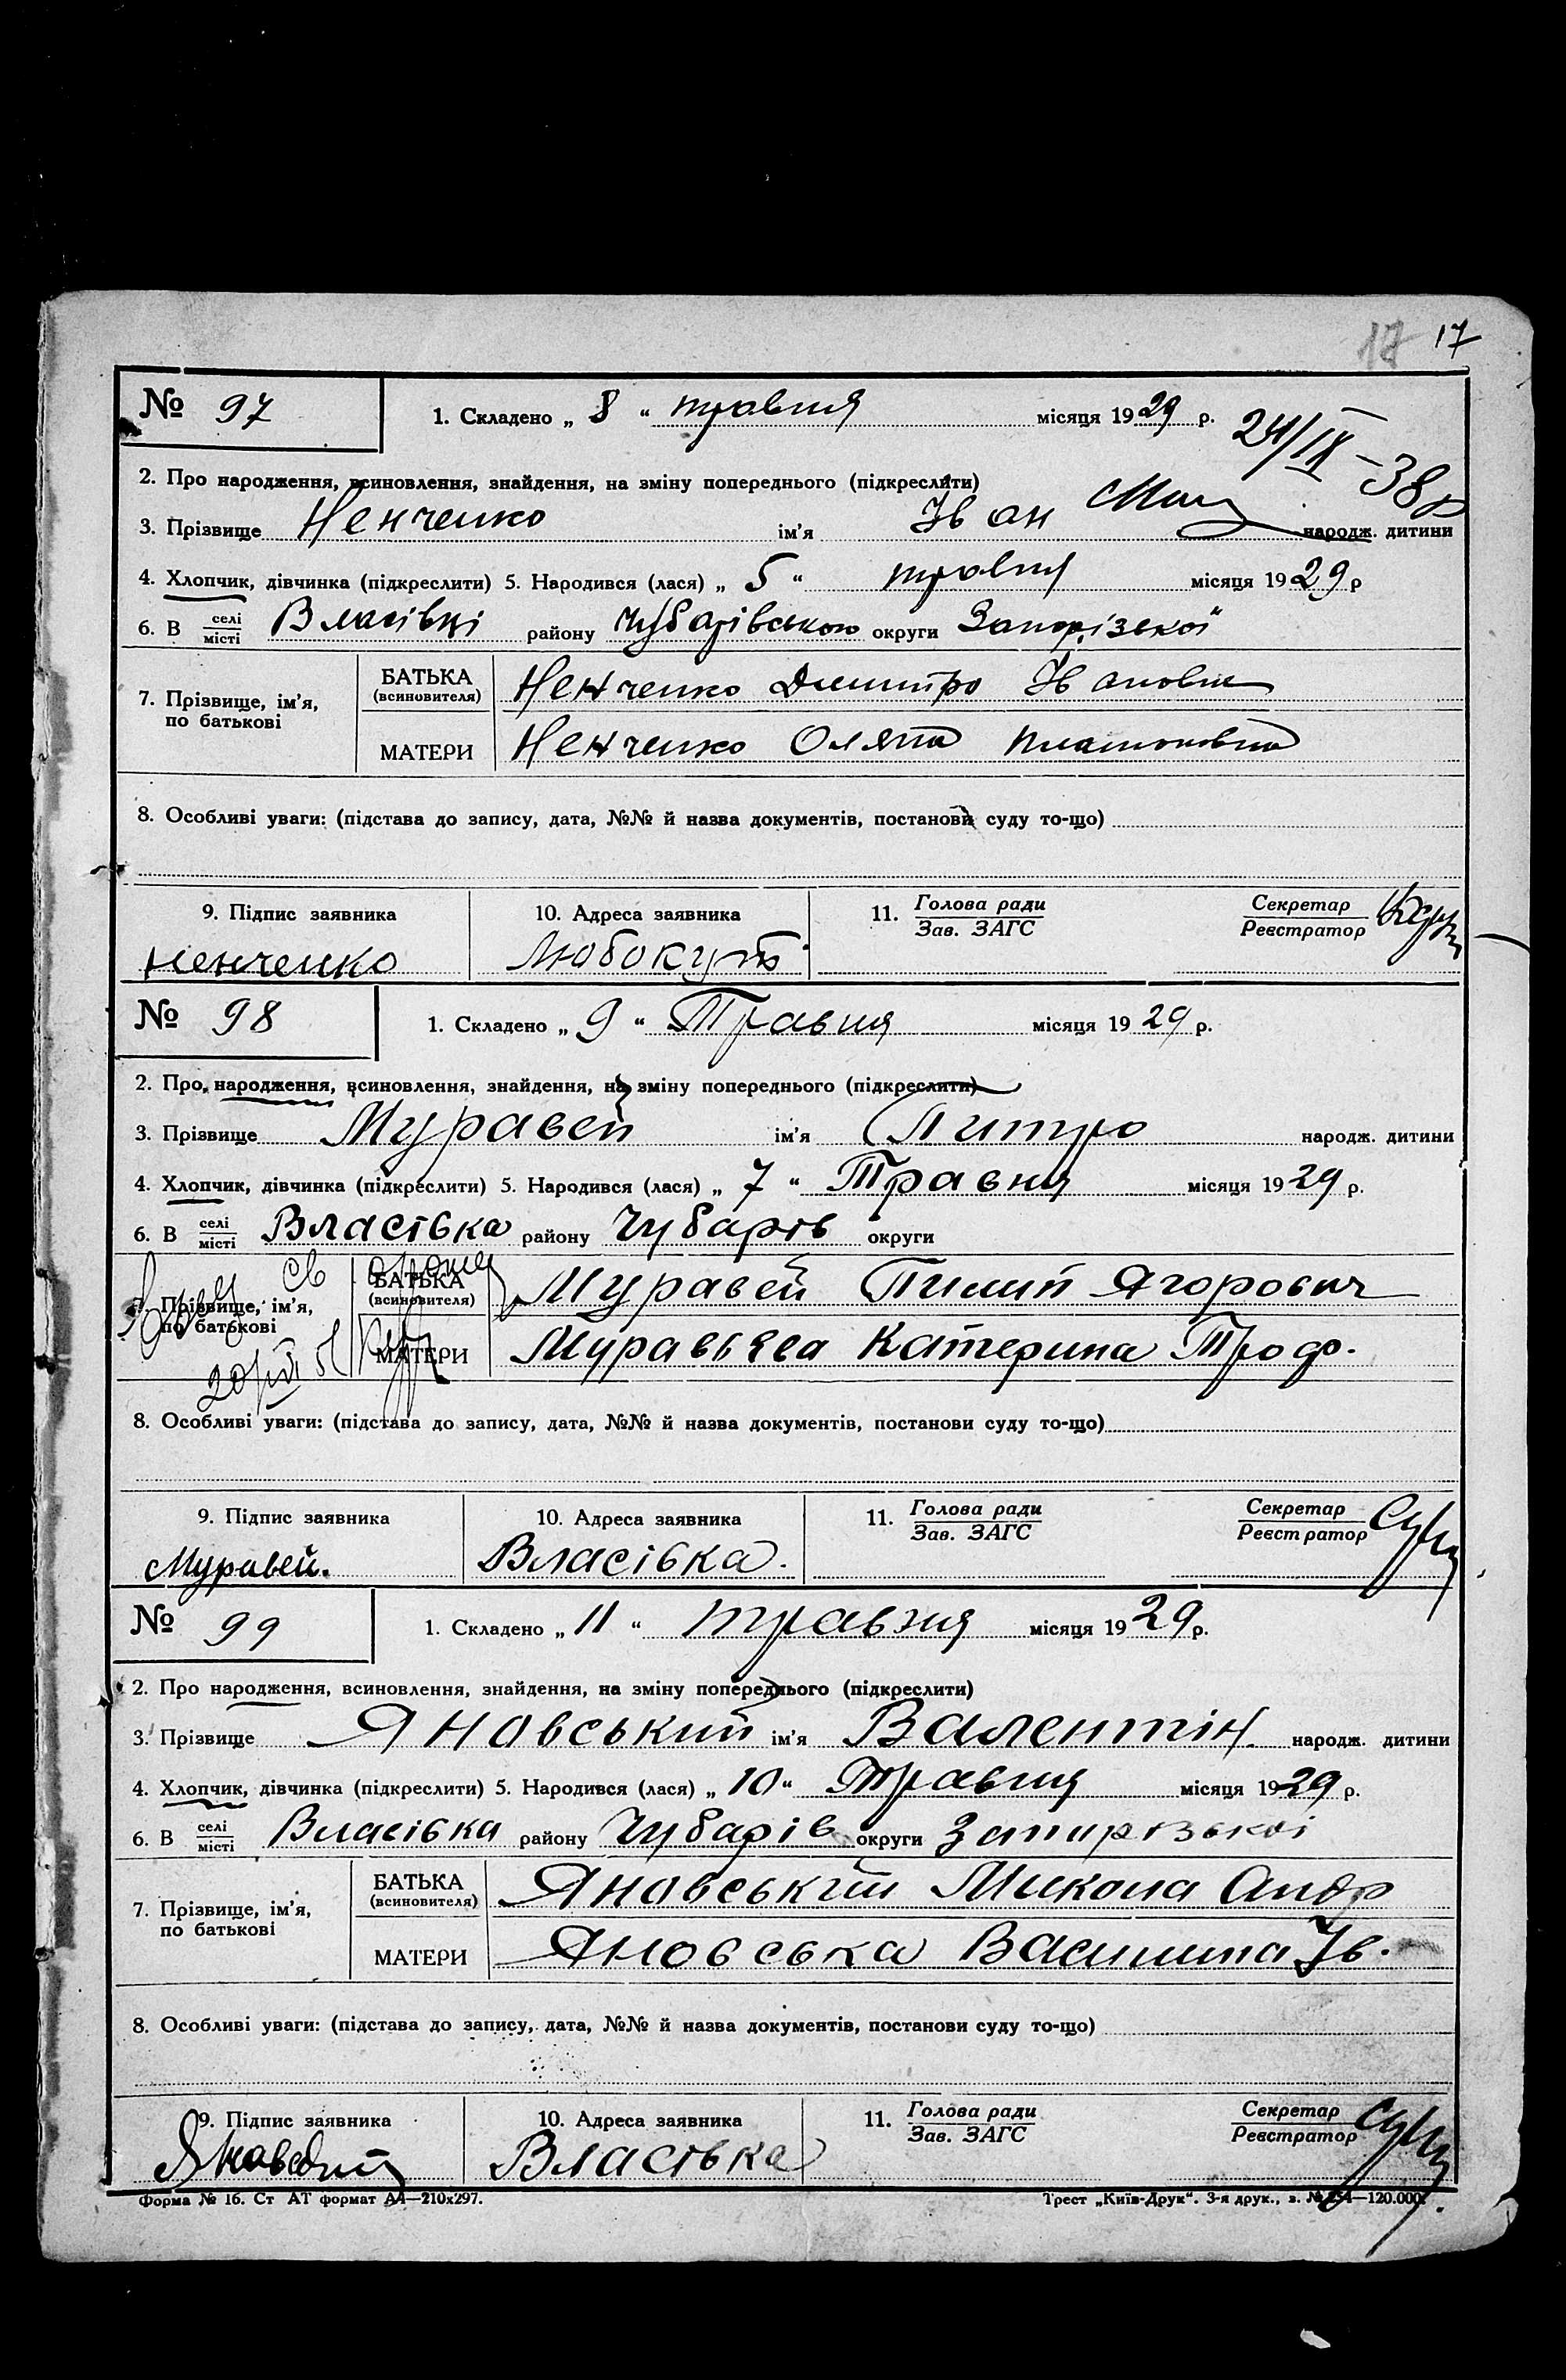 17 17
№ 97 1. Складено „ 8 “ травня місяця 1929 р.
24/IX-38р
2. Про народження, всиновлення, знайдення, на зміну попереднього (підкреслити)
3. Прізвище Ненченко ім'я Іван народж. дитини
4. Хлопчик, дівчинка (підкреслити) 5. Народився (лася) „ 5 “ травня місяця 1929 р
6. В селі/місті Власівці району Чубарівською округи Запорізької
7. Прізвище, ім'я, по батькові БАТЬКА (всиновителя) Ненченко Дмитро Іванович
МАТЕРИ Ненченко Оляна Платоновна
8. Особливі уваги: (підстава до запису, дата, №№ й назва документів, постанови суду то-що)
9. Підпис заявника 10. Адреса заявника 11. Голова ради/Зав. ЗАГС Секретар/Реєстратор
Ненченко Любокут
№ 98 1. Складено „ 9 “ Травня місяця 1929 р.
2. Про народження, всиновлення, знайдення, на зміну попереднього (підкреслити)
3. Прізвище Муравей ім'я Питро народж. дитини
4. Хлопчик, дівчинка (підкреслити) 5. Народився (лася) „ 7 “ Травня місяця 1929 р.
6. В селі/місті Власівка району Чубарів округи
7. Прізвище, ім'я, по батькові БАТЬКА (всиновителя) Муравей Пилип Ягорович
МАТЕРИ Муравьева Катерина Троф.
8. Особливі уваги: (підстава до запису, дата, №№ й назва документів, постанови суду то-що)
9. Підпис заявника 10. Адреса заявника 11. Голова ради/Зав. ЗАГС Секретар/Реєстратор
Муравей. Власівка.
№ 99 1. Складено „ 11 “ травня місяця 1929 р.
2. Про народження, всиновлення, знайдення, на зміну попереднього (підкреслити)
3. Прізвище Яновський ім'я Валентін народж. дитини
4. Хлопчик, дівчинка (підкреслити) 5. Народився (лася) „ 10 “ Травня місяця 1929 р.
6. В селі/місті Власівка району Чубарів округи Запирізькоі
7. Прізвище, ім'я, по батькові БАТЬКА (всиновителя) Яновський Микола Андр
МАТЕРИ Яновська Василина Ів.
8. Особливі уваги: (підстава до запису, дата, №№ й назва документів, постанови суду то-що)
9. Підпис заявника 10. Адреса заявника 11. Голова ради/Зав. ЗАГС Секретар/Реєстратор
Яновский Власівка
Форма № 16. Ст АТ формат А4—210х297. Трест „Київ-Друк“. 3-я друк., з. №